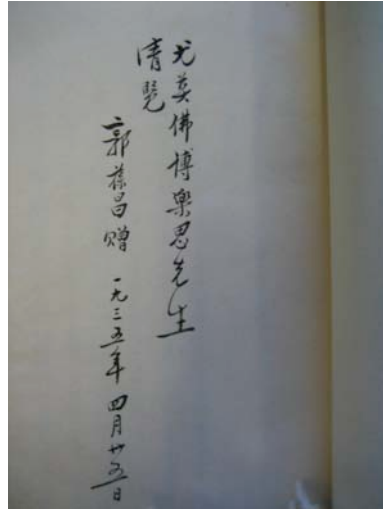 尤莫佛博樂思先生
清覽
郭葆昌贈 一九三五年 四月廿五日